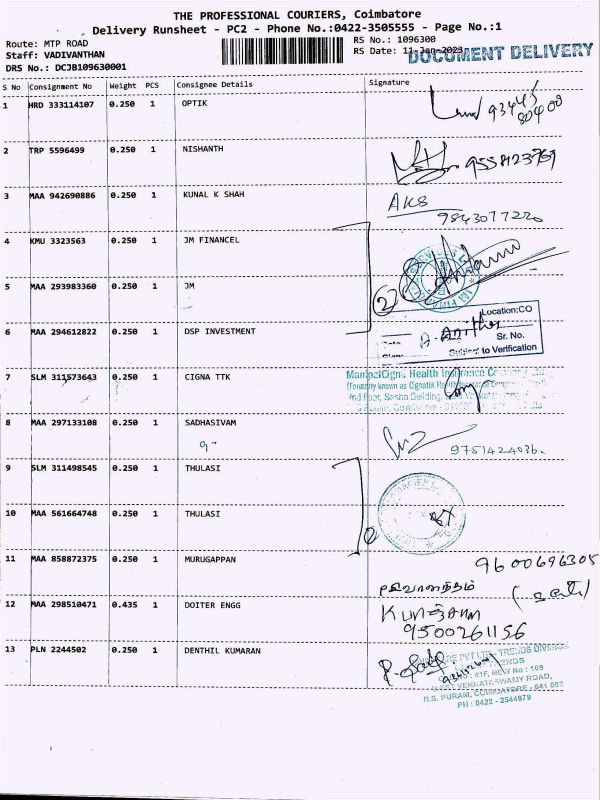 THE PROFESSIONAL COURIERS, Coimbatore
Delivery Runsheet - PC2 - Phone No.:0422-3505555 - Page No.:1
Route: MTP ROAD
RS No.: 1096300
Staff: VADIVANTHAN
RS Date: 11-Jan-2023
DOCUMENT DELIVERY
DRS No.: DCJB109630001
S No Consignment No Weight PCS Consignee Details Signature
1 HRD 333114107 0.250 1 OPTIK
93445
80400
2 TRP 5596499 0.250 1 NISHANTH
9558123769
3 MAA 942690886 0.250 1 KUNAL K SHAH AKS
9843077220
4 KMU 3323563 0.250 1 JM FINANCEL
5 MAA 293983360 0.250 1 JM
2
Location:CO
6 MAA 294612822 0.250 1 DSP INVESTMENT
Sr. No.
Subject to Verification
7 SLM 311573643 0.250 1 CIGNA TTK
ManipalCigna Health Insurance
8 MAA 297133108 0.250 1 SADHASIVAM
9751424036.
9 SLM 311498545 0.250 1 THULASI
10 MAA 561664748 0.250 1 THULASI
11 MAA 858872375 0.250 1 MURUGAPPAN
9600696305
12 MAA 298510471 0.435 1 DOITER ENGG
9500261156
13 PLN 2244502 0.250 1 DENTHIL KUMARAN
TRENDS DIVISION
TRENDS
41F, NEW No : 169
VENKATASWAMY ROAD,
R.S. PURAM, COIMBATORE - 641 002
PH : 0422 - 2544979